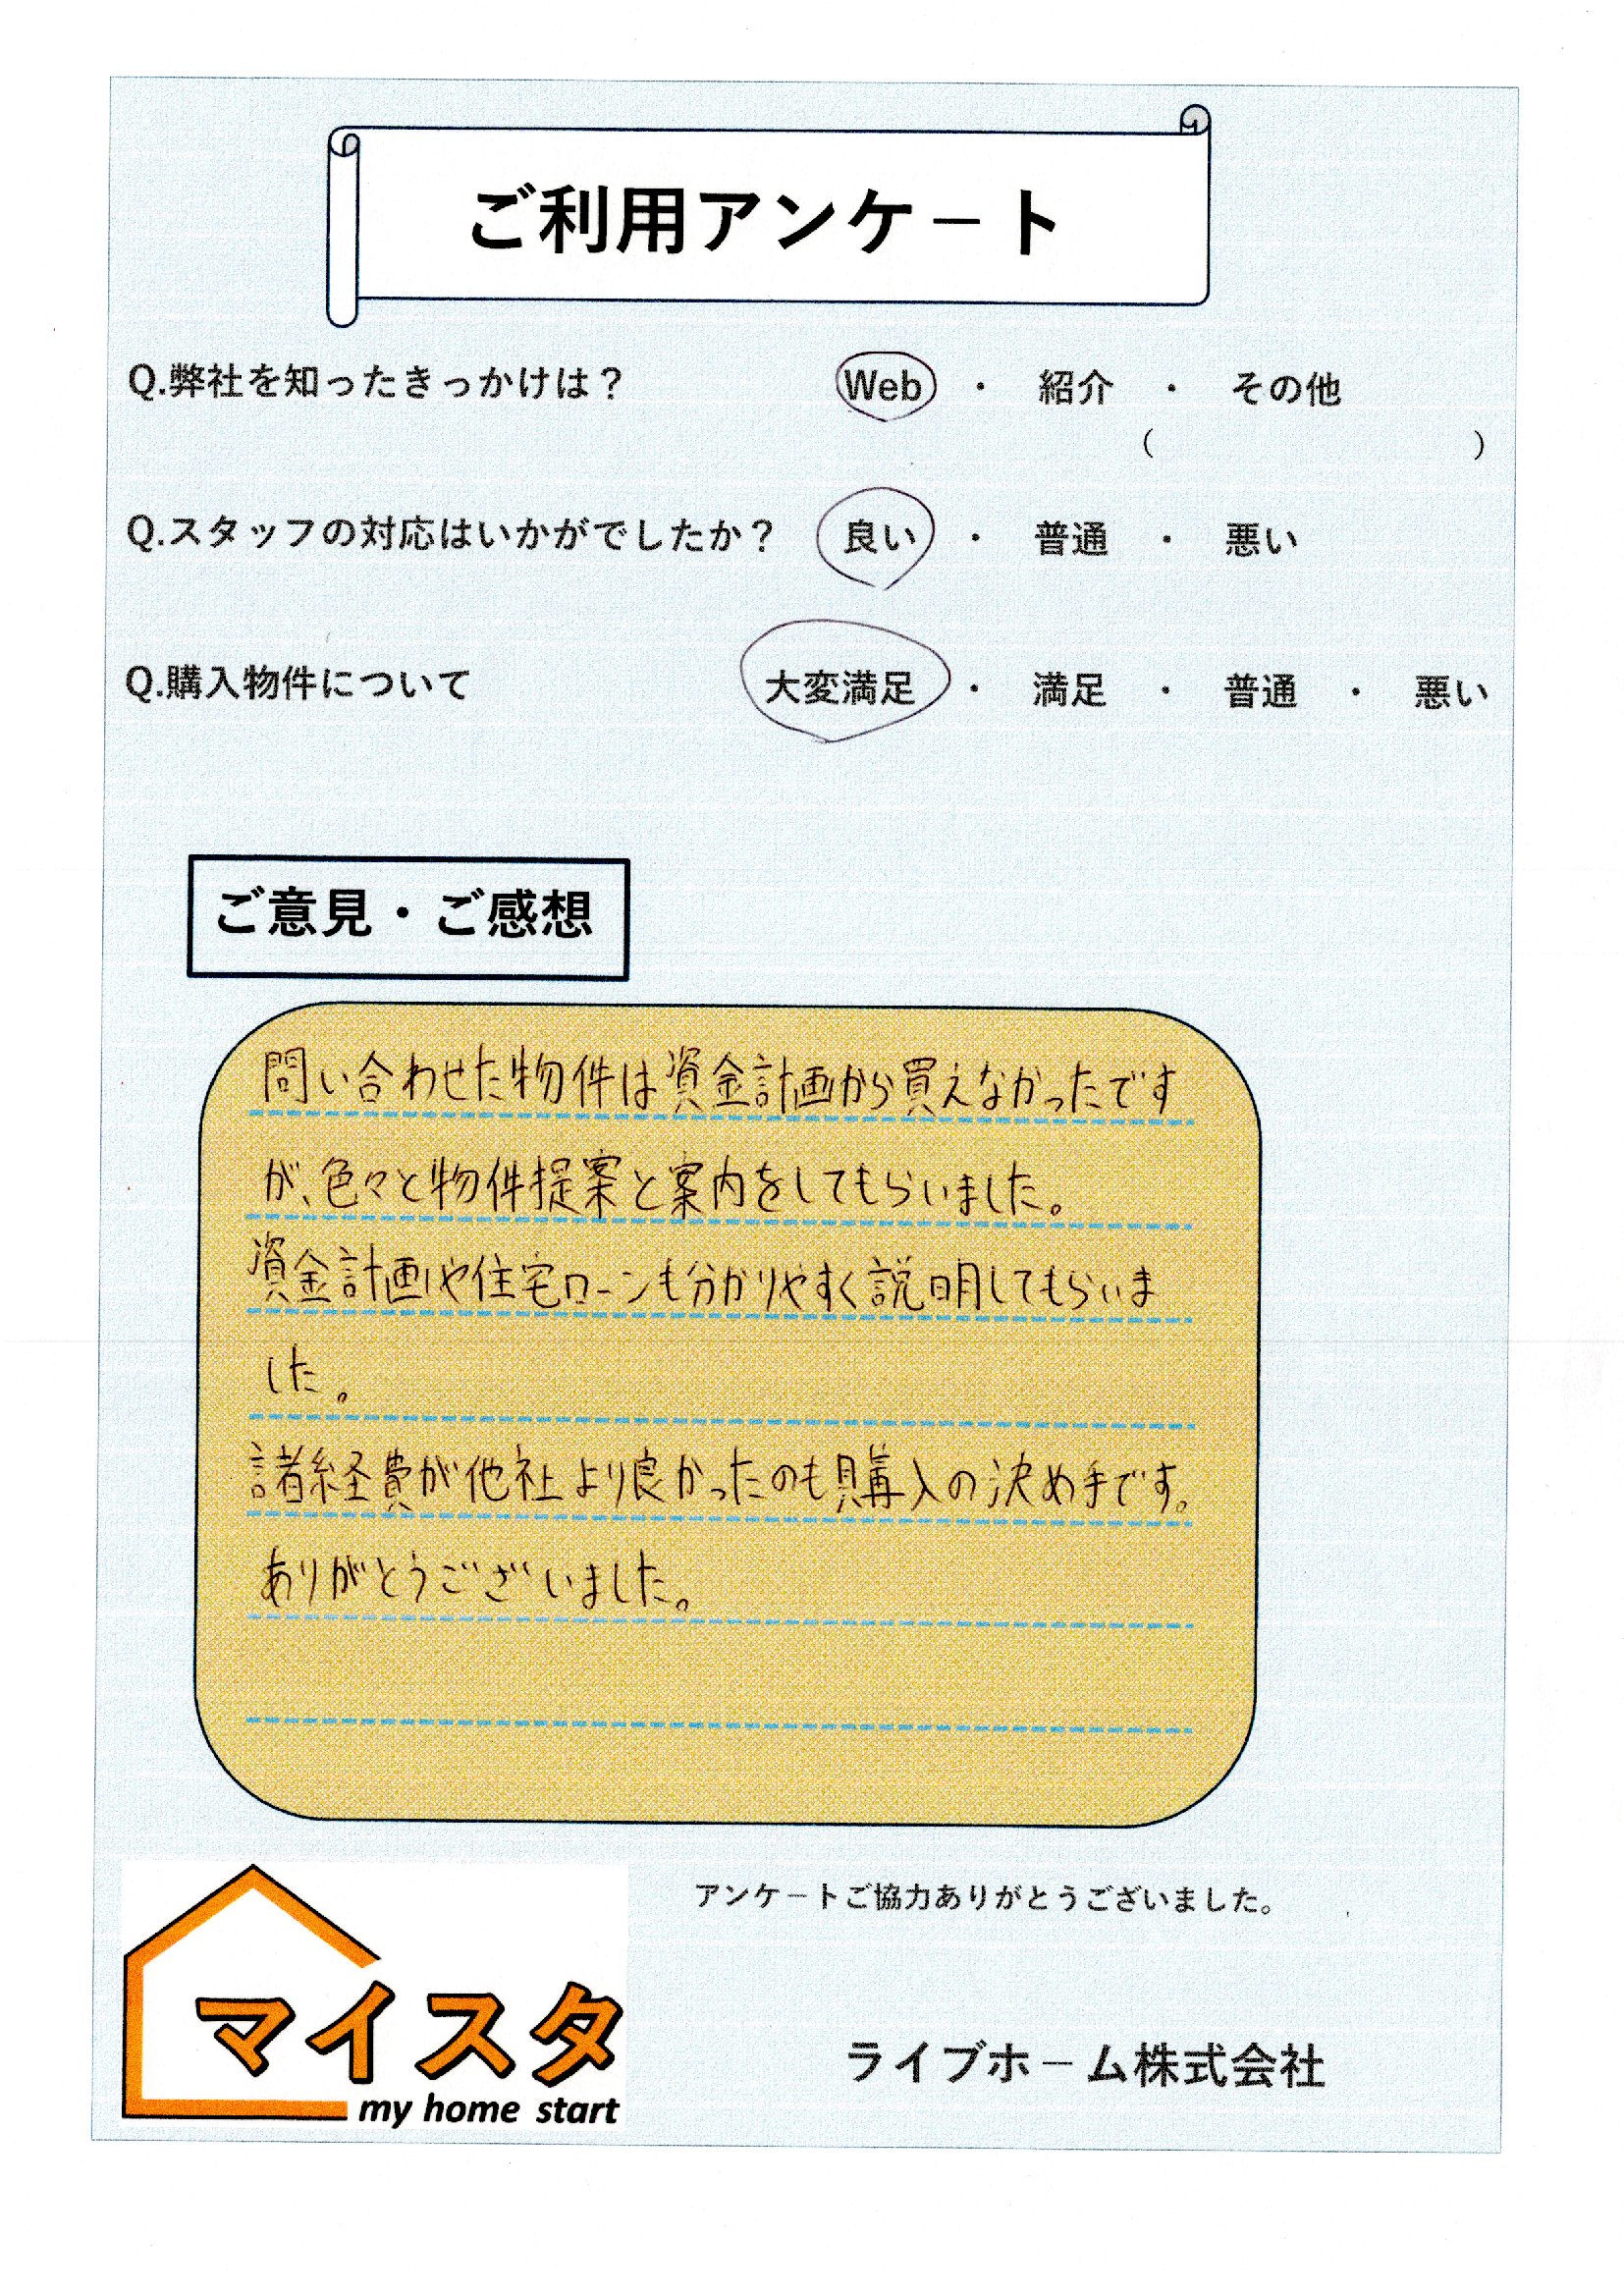 ご利用アンケート
Q.弊社を知ったきっかけは？ Web ・ 紹介 ・ その他
（ ）
Q.スタッフの対応はいかがでしたか？ 良い ・ 普通 ・ 悪い
Q.購入物件について 大変満足 ・ 満足 ・ 普通 ・ 悪い
ご意見・ご感想
問い合わせた物件は資金計画から買えなかったです
が、色々と物件提案と案内をしてもらいました。
資金計画や住宅ローンも分かりやすく説明してもらいま
した。
諸経費が他社より良かったのも購入の決め手です。
ありがとうございました。
アンケートご協力ありがとうございました。
マイスタ
my home start
ライブホーム株式会社